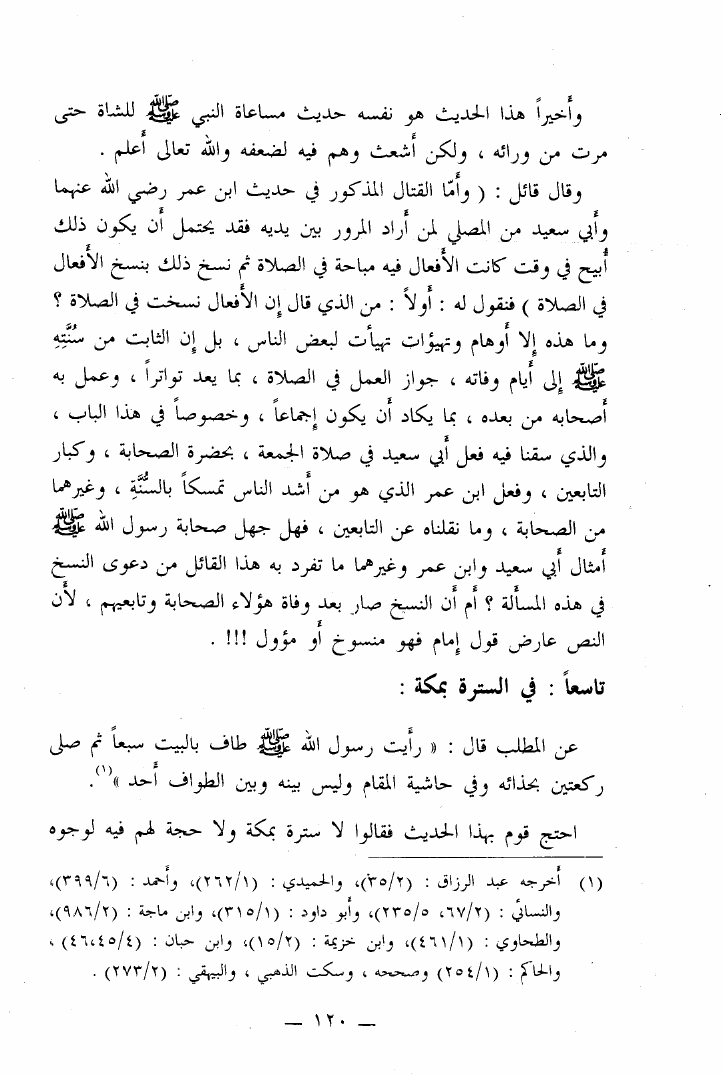 وأخيراً هذا الحديث هو نفسه حديث مساعاة النبي ﷺ للشاة حتى
مرت من ورائه ، ولكن أشعث وهم فيه لضعفه والله تعالى أعلم .
وقال قائل : ( وأمّا القتال المذكور في حديث ابن عمر رضي الله عنهما
وأبي سعيد من المصلي لمن أراد المرور بين يديه فقد يحتمل أن يكون ذلك
أبيح في وقت كانت الأفعال فيه مباحة في الصلاة ثم نسخ ذلك بنسخ الأفعال
في الصلاة ) فنقول له : أولاً : من الذي قال إن الأفعال نسخت في الصلاة ؟
وما هذه إلا أوهام وتهيؤات تهيأت لبعض الناس ، بل إن الثابت من سُنَّتِهِ
ﷺ إلى أيام وفاته ، جواز العمل في الصلاة ، بما يعد تواتراً ، وعمل به
أصحابه من بعده ، بما يكاد أن يكون إجماعاً ، وخصوصاً في هذا الباب ،
والذي سقنا فيه فعل أبي سعيد في صلاة الجمعة ، بحضرة الصحابة ، وكبار
التابعين ، وفعل ابن عمر الذي هو من أشد الناس تمسكاً بالسُّنَّةِ ، وغيرهما
من الصحابة ، وما نقلناه عن التابعين ، فهل جهل صحابة رسول الله ﷺ
أمثال أبي سعيد وابن عمر وغيرهما ما تفرد به هذا القائل من دعوى النسخ
في هذه المسألة ؟ أم أن النسخ صار بعد وفاة هؤلاء الصحابة وتابعيهم ، لأن
النص عارض قول إمام فهو منسوخ أو مؤول !!! .
تاسعاً : في السترة بمكة :
عن المطلب قال : « رأيت رسول الله ﷺ طاف بالبيت سبعاً ثم صلى
ركعتين بحذائه وفي حاشية المقام وليس بينه وبين الطواف أحد »(١).
احتج قوم بهذا الحديث فقالوا لا سترة بمكة ولا حجة لهم فيه لوجوه
(١) أخرجه عبد الرزاق : (٣٥/٢)، والحميدي : (٢٦٢/١)، وأحمد : (٣٩٩/٦)،
والنسائي : (٦٧/٢، ٢٣٥/٥)، وأبو داود : (٣١٥/١)، وابن ماجة : (٩٨٦/٢)،
والطحاوي : (٤٦١/١)، وابن خزيمة : (١٥/٢)، وابن حبان : (٤٦،٤٥/٤) ،
والحاكم : (٢٥٤/١) وصححه ، وسكت الذهبي ، والبيهقي : (٢٧٣/٢) .
— ١٢٠ —